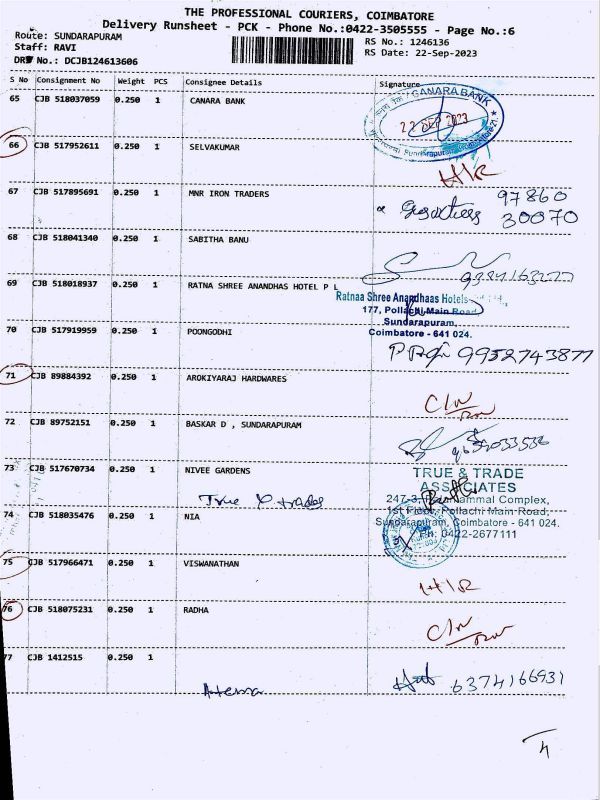 THE PROFESSIONAL COURIERS, COIMBATORE
Delivery Runsheet - PCK - Phone No.:0422-3505555 - Page No.:6
Route: SUNDARAPURAM
RS No.: 1246136
Staff: RAVI
RS Date: 22-Sep-2023
DRS No.: DCJB124613606
S No Consignment No Weight PCS Consignee Details Signature
65 CJB 518037059 0.250 1 CANARA BANK
CANARA BANK
22 SEP 2023
66 CJB 517952611 0.250 1 SELVAKUMAR
H/R
67 CJB 517895691 0.250 1 MNR IRON TRADERS
97860
30070
68 CJB 518041340 0.250 1 SABITHA BANU
69 CJB 518018937 0.250 1 RATNA SHREE ANANDHAS HOTEL P L
Ratnaa Shree Anandhaas Hotels
177, Pollachi Main Road,
Sundarapuram,
Coimbatore - 641 024.
70 CJB 517919959 0.250 1 POONGODHI
9952743877
71 CJB 89884392 0.250 1 AROKIYARAJ HARDWARES
72 CJB 89752151 0.250 1 BASKAR D , SUNDARAPURAM
73 CJB 517670734 0.250 1 NIVEE GARDENS
True & trades
TRUE & TRADE
ASSOCIATES
1st Floor, Pollachi Main Road,
Sundarapuram, Coimbatore - 641 024.
Ph: 0422-2677111
74 CJB 518035476 0.250 1 NIA
75 CJB 517966471 0.250 1 VISWANATHAN
H/R
76 CJB 518075231 0.250 1 RADHA
77 CJB 1412515 0.250 1
6374166931
4